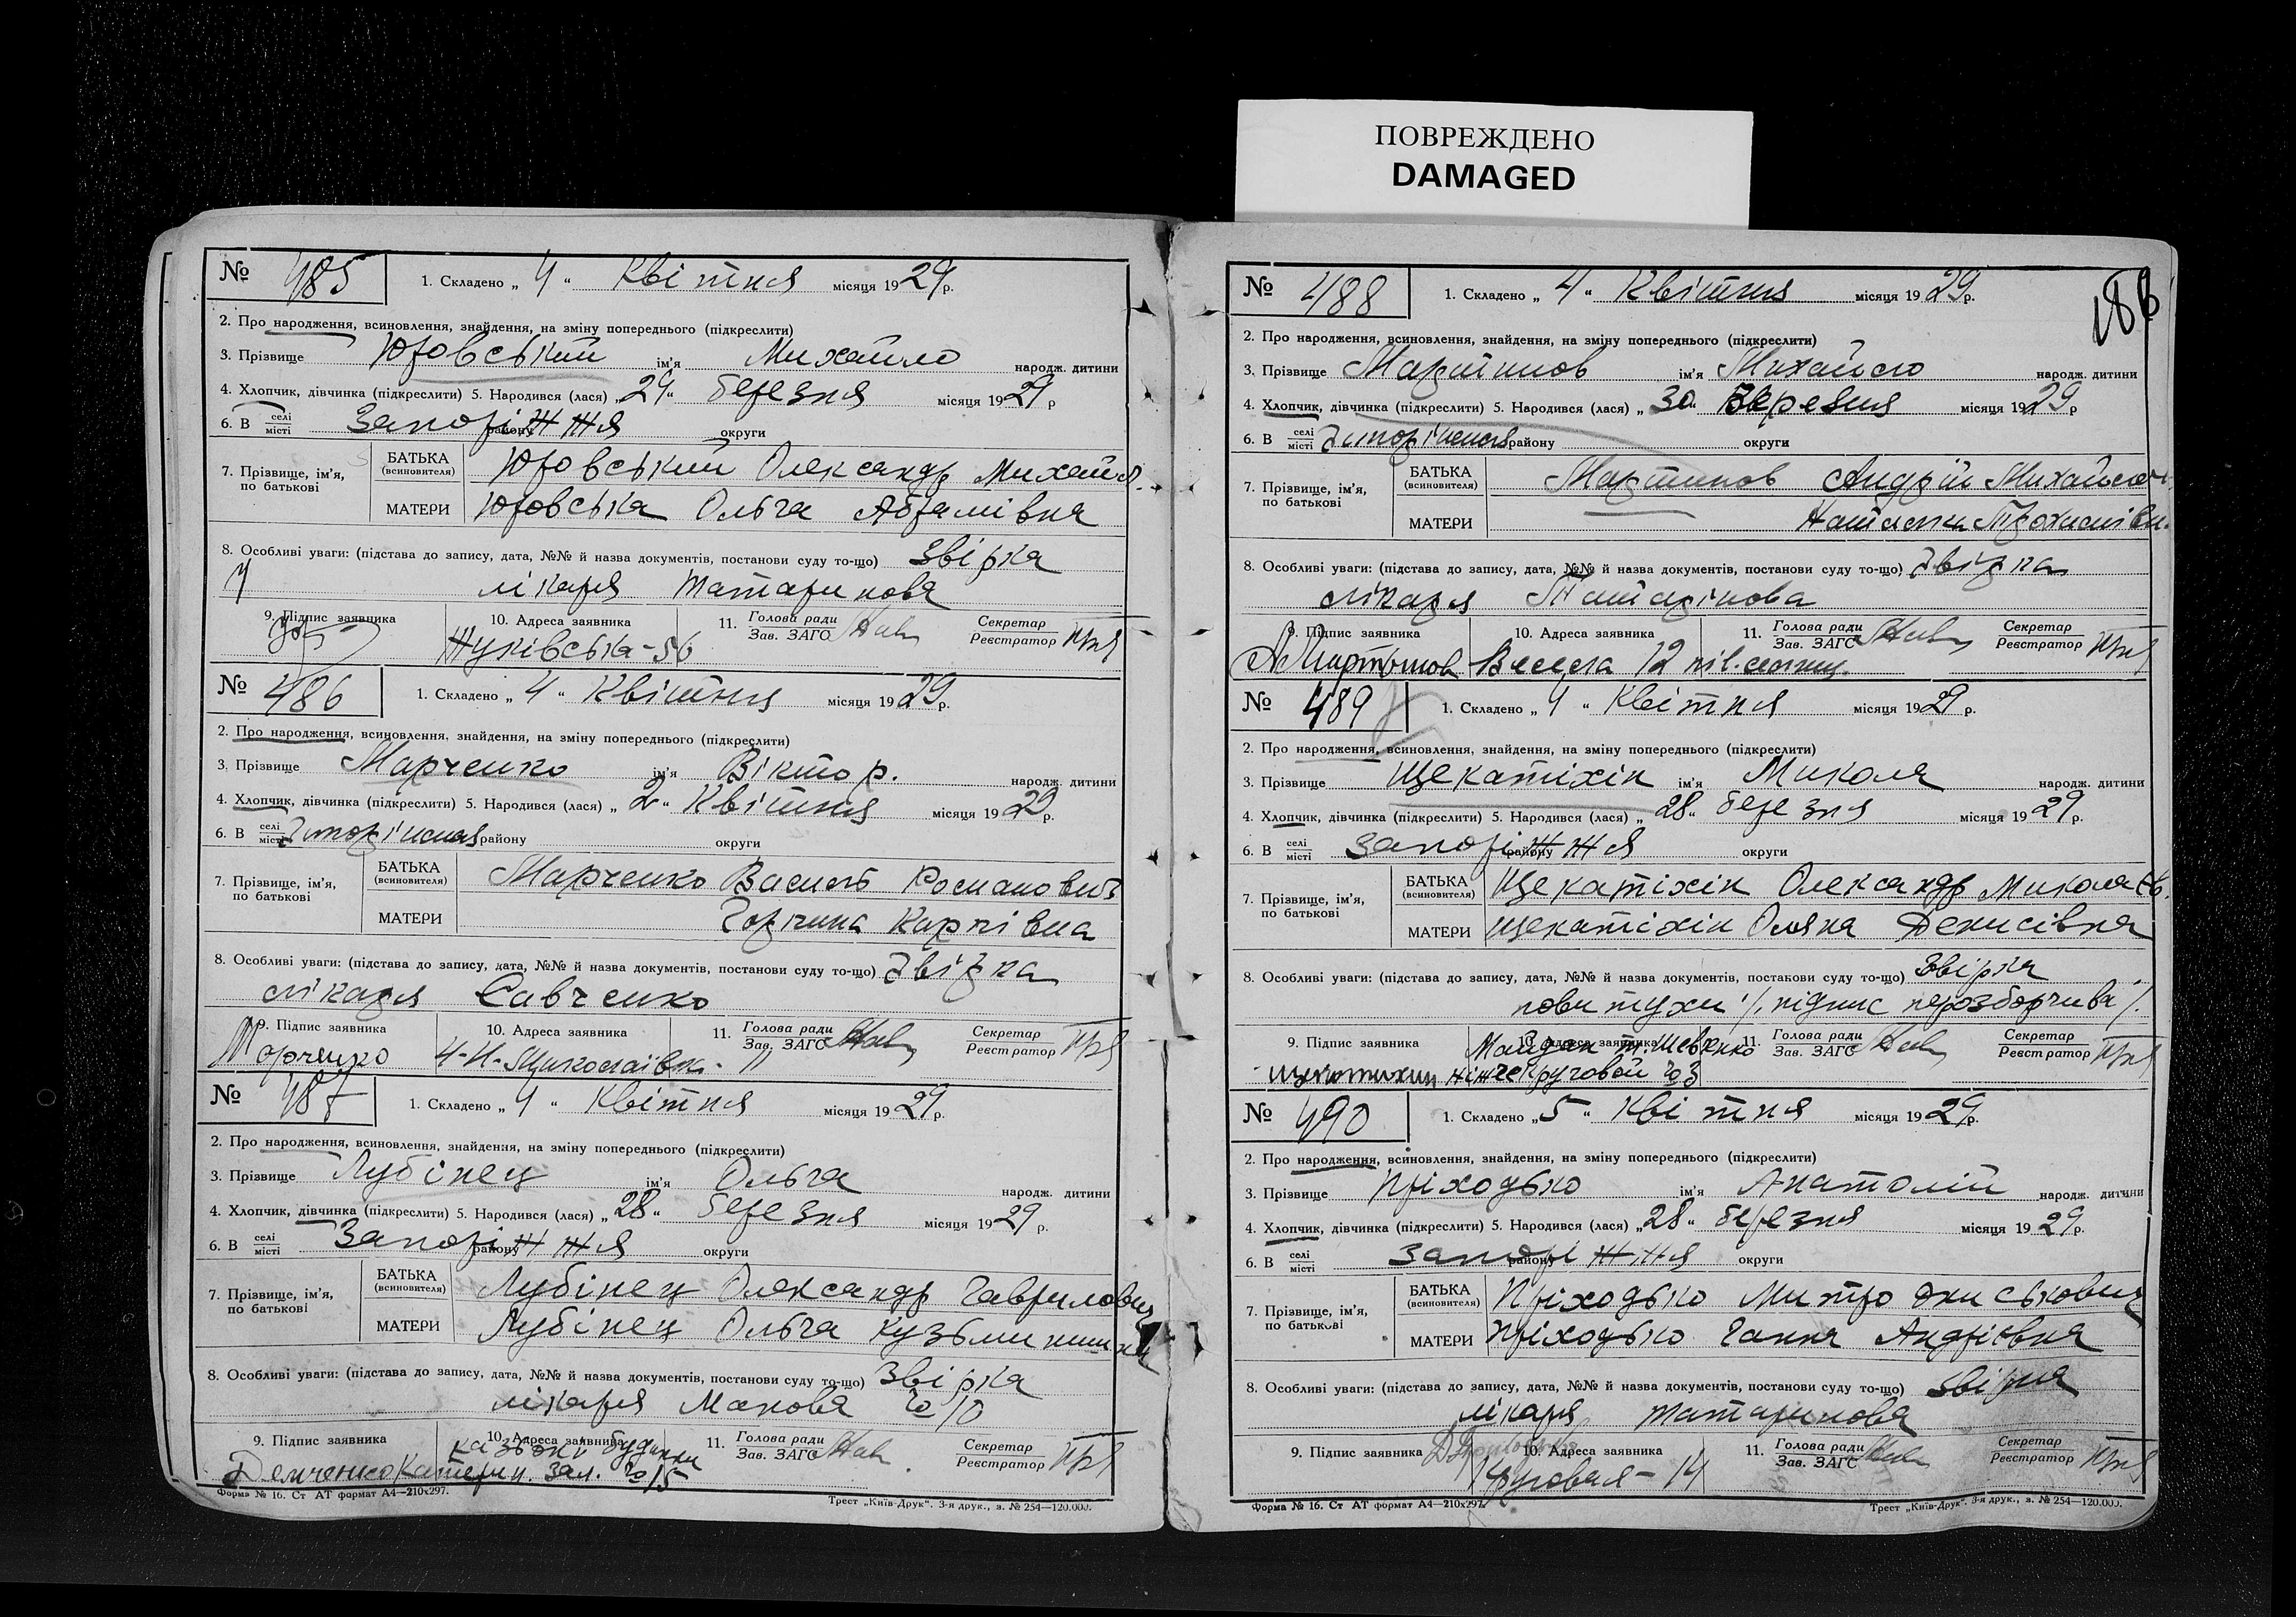 ПОВРЕЖДЕНО
DAMAGED
№ 485 1. Складено „ 4 “ Квітня місяця 1929 р.
2. Про народження, всиновлення, знайдення, на зміну попереднього (підкреслити)
3. Прізвище Юровський ім'я Михайло народж. дитини
4. Хлопчик, дівчинка (підкреслити) 5. Народився (лася) „ 24 “ березня місяця 1929 р
6. В селі місті Запоріжжя району округи
7. Прізвище, ім'я, по батькові
БАТЬКА (всиновителя) Юровський Олександр Михайл.
МАТЕРИ Юровська Ольга Абрамівна
8. Особливі уваги: (підстава до запису, дата, №№ й назва документів, постанови суду то-що) Звірка
лікаря Татаринова
9. Підпис заявника 10. Адреса заявника 11. Голова ради Зав. ЗАГС Секретар Реєстратор
Жуківська-56
№ 486 1. Складено „ 4 “ Квітня місяця 1929 р.
2. Про народження, всиновлення, знайдення, на зміну попереднього (підкреслити)
3. Прізвище Марченко ім'я Віктор. народж. дитини
4. Хлопчик, дівчинка (підкреслити) 5. Народився (лася) „ 2 “ Квітня місяця 1929 р.
6. В селі місті району округи
7. Прізвище, ім'я, по батькові
БАТЬКА (всиновителя) Марченко Василь Романович
МАТЕРИ Горпина Карпівна
8. Особливі уваги: (підстава до запису, дата, №№ й назва документів, постанови суду то-що) Звірка
лікаря Савченко
9. Підпис заявника 10. Адреса заявника 11. Голова ради Зав. ЗАГС Секретар Реєстратор
Марченко 11
№ 487 1. Складено „ 4 “ Квітня місяця 1929 р.
2. Про народження, всиновлення, знайдення, на зміну попереднього (підкреслити)
3. Прізвище Лубінец ім'я Ольга народж. дитини
4. Хлопчик, дівчинка (підкреслити) 5. Народився (лася) „ 28 “ березня місяця 1929 р.
6. В селі місті Запоріжжя району округи
7. Прізвище, ім'я, по батькові
БАТЬКА (всиновителя) Лубінец Олександр Гаврилович
МАТЕРИ Лубінец Ольга
8. Особливі уваги: (підстава до запису, дата, №№ й назва документів, постанови суду то-що) Звірка
лікаря № 10
9. Підпис заявника 10. Адреса заявника 11. Голова ради Зав. ЗАГС Секретар Реєстратор
Демченко № 15
Форма № 16. Ст АТ формат А4—210х297.
Трест „Київ-Друк“. 3-я друк., з. № 254—120.000.
186
№ 488 1. Складено „ 4 “ Квітня місяця 1929 р.
2. Про народження, всиновлення, знайдення, на зміну попереднього (підкреслити)
3. Прізвище Мартинов ім'я Михайло народж. дитини
4. Хлопчик, дівчинка (підкреслити) 5. Народився (лася) „ 30 “ Березня місяця 1929 р
6. В селі місті району округи
7. Прізвище, ім'я, по батькові
БАТЬКА (всиновителя) Мартинов Андрій Михайлов.
МАТЕРИ
8. Особливі уваги: (підстава до запису, дата, №№ й назва документів, постанови суду то-що) Звірка
лікаря Татарінова
9. Підпис заявника 10. Адреса заявника 11. Голова ради Зав. ЗАГС Секретар Реєстратор
А Мартынов 12
№ 489 1. Складено „ 4 “ Квітня місяця 1929 р.
2. Про народження, всиновлення, знайдення, на зміну попереднього (підкреслити)
3. Прізвище Щекатіхін ім'я Микола народж. дитини
4. Хлопчик, дівчинка (підкреслити) 5. Народився (лася) „ 28 “ березня місяця 1929 р.
6. В селі місті Запоріжжя району округи
7. Прізвище, ім'я, по батькові
БАТЬКА (всиновителя) Щекатіхін Олександр Миколаєв.
МАТЕРИ Щекатіхін Оляна Денисівна
8. Особливі уваги: (підстава до запису, дата, №№ й назва документів, постанови суду то-що) Звірка
повитухи /. підпис нерозборчива /.
9. Підпис заявника 10. Адреса заявника 11. Голова ради Зав. ЗАГС Секретар Реєстратор
Майдан т. Шевченко
Круговой № 3
№ 490 1. Складено „ 5 “ Квітня місяця 1929 р.
2. Про народження, всиновлення, знайдення, на зміну попереднього (підкреслити)
3. Прізвище Пріходько ім'я Анатолій народж. дитини
4. Хлопчик, дівчинка (підкреслити) 5. Народився (лася) „ 28 “ березня місяця 1929 р.
6. В селі місті Запоріжжя району округи
7. Прізвище, ім'я, по батькові
БАТЬКА (всиновителя) Пріходько Митро
МАТЕРИ Пріходько Ганна Андріївна
8. Особливі уваги: (підстава до запису, дата, №№ й назва документів, постанови суду то-що) Звірка
лікаря Татаринова
9. Підпис заявника 10. Адреса заявника 11. Голова ради Зав. ЗАГС Секретар Реєстратор
Круговая-14
Форма № 16. Ст АТ формат А4—210х297.
Трест „Київ-Друк“. 3-я друк., з. № 254—120.000.